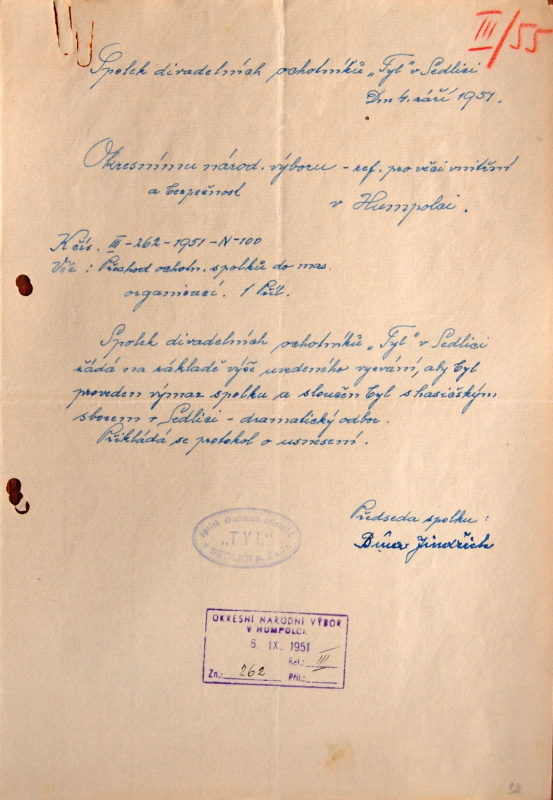 III/55
Spolek divadelních ochotníků „Tyl" v Sedlici
Dne 4. září 1951.
Okresnímu národ. výboru - ref. pro věci vnitřní
a bezpečnost
v Humpolci.
K čís. III-262-1951-N-100
Věc: Přechod ochotn. spolků do mas.
organisací. 1 Příl.
Spolek divadelních ochotníků „Tyl" v Sedlici
žádá na základě výše uvedeného vyzvání, aby byl
proveden výmaz spolku a sloučen byl s hasičským
sborem v Sedlici - dramatický odbor.
Přikládá se protokol o usnesení.
Předseda spolku:
Bína Jindřich
Spolek divadelních ochotníků
„TYL"
v SEDLICI p.
OKRESNÍ NÁRODNÍ VÝBOR
V HUMPOLCI.
6. IX. 1951
Ref.: III
Zn.: 262 Příl.: